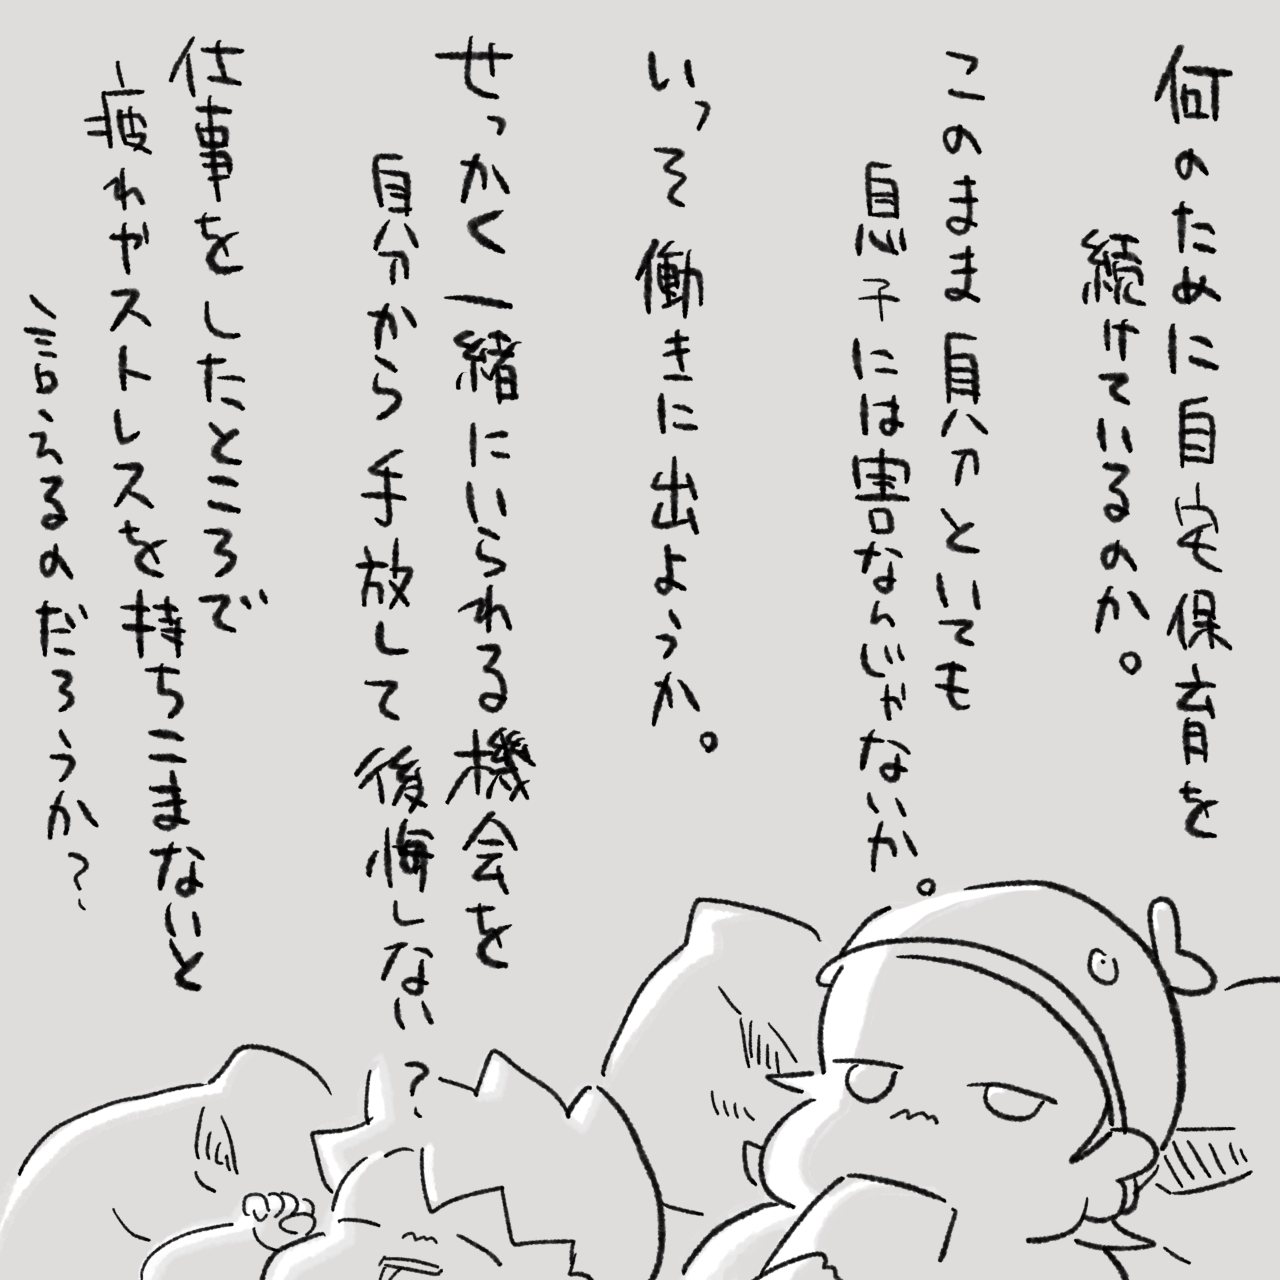 何のために自宅保育を
続けているのか。
このまま自分といても
息子には害なんじゃないか。
いっそ働きに出ようか。
せっかく一緒にいられる機会を
自分から手放して後悔しない?
仕事をしたところで
疲れやストレスを持ちこまないと
言えるのだろうか?